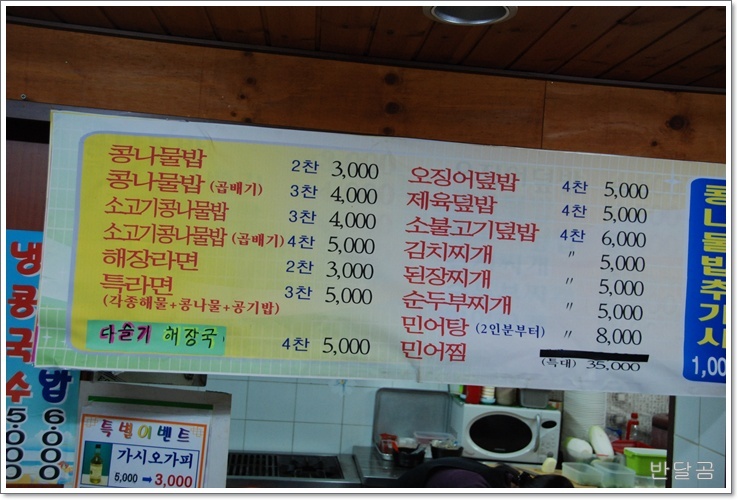 콩나물밥 2찬 3,000
콩나물밥 (곱배기) 3찬 4,000
소고기콩나물밥 3찬 4,000
소고기콩나물밥 (곱배기) 4찬 5,000
해장라면 2찬 3,000
특라면 3찬 5,000
(각종해물+콩나물+공기밥)
다슬기 해장국 4찬 5,000
오징어덮밥 4찬 5,000
제육덮밥 4찬 5,000
소불고기덮밥 4찬 6,000
김치찌개 〃 5,000
된장찌개 5,000
순두부찌개 〃 5,000
민어탕 (2인분부터) 〃 8,000
민어찜
(특대) 35,000
콩나물밥추가시
1,00
냉콩국수
5.000
밥
6.000
특별이벤트
가시오가피
5,000 ➡ 3,000
반달곰